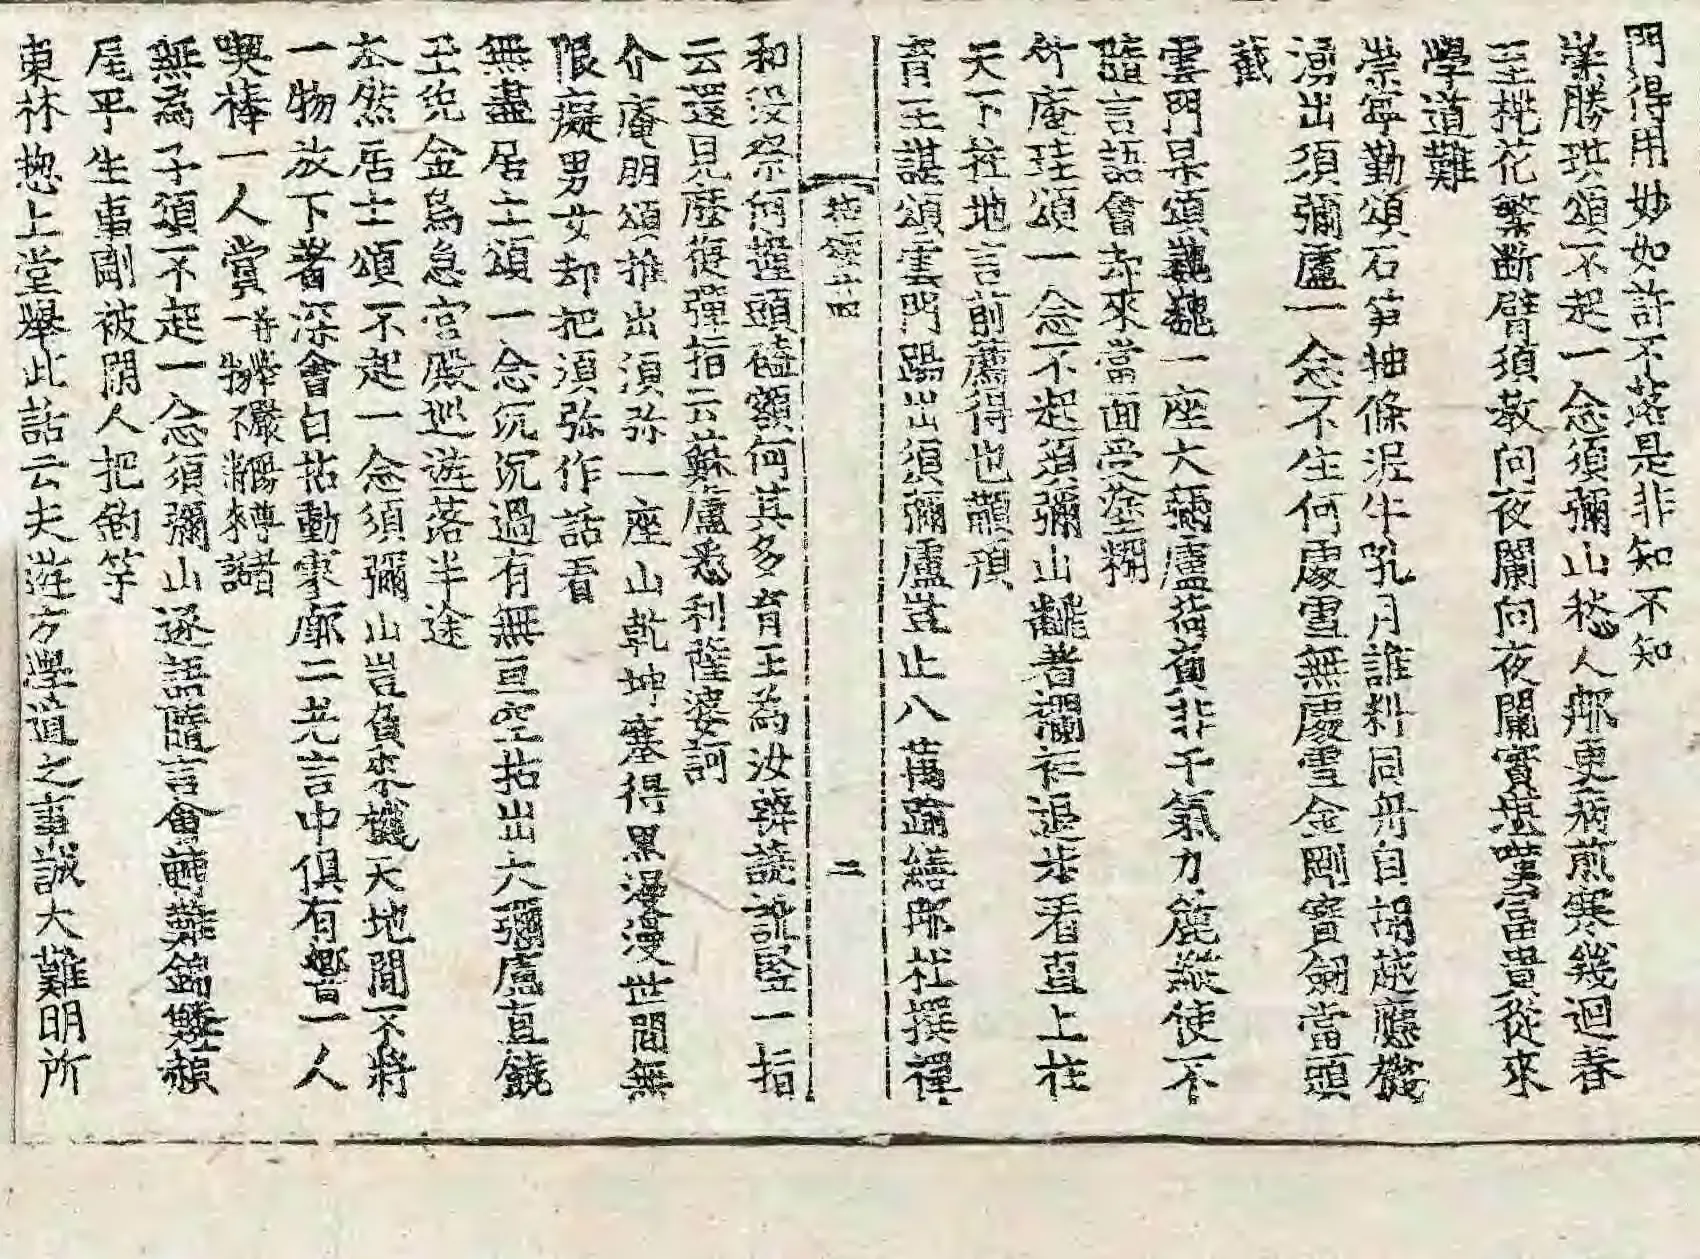 門得用妙如許不落是非知不知
崇勝珙頌不起一念須彌山愁人鄉更病煎寒幾迴春
至桃花繁斷臂須教向夜闌向夜闌實堪嘆富貴從來
學道難
崇寧勤頌石笋抽條泥牛吼月誰料同舟自胡越應機
湧出須彌盧一念不生何處雪無處雪金剛寶劒當頭
截
雲門杲頌巍巍一座大彌盧荷負非干氣力麁縱使不
隨言語會却來當面受塗糊
竹庵珪頌一念不起須彌山齪者襴衫退步看直上柱
天下柱地言前薦得也顢頇
育王諶頌雲門陽出須彌盧豈止八萬踰繕那杜撰禪
拈頌廿四
二
和没奈何擡頭磕額何其多育王爲汝解譊訛竪一指
云還見麽復彈指云蘇盧悉利薩婆訶
介庵朋頌推出須弥一座山乾坤塞得黒漫漫世間無
限癡男女却把須弥作話看
無盡居士頌一念沉沉過有無亘空拈出大彌盧直饒
玉兎金烏急宮殿巡遊落半途
本然居士頌不起一念須彌山豈負來機天地間不將
一物放下著深會白拈動寥廓二老言中俱有響一人
喫棒一人賞一物不將來話
無為子頌不起一念須彌山逐語隨言會轉難錦鱗赬
尾平生事剛被閑人把釣竿
東林揔上堂舉此話云夫遊方學道之事誠大難明所